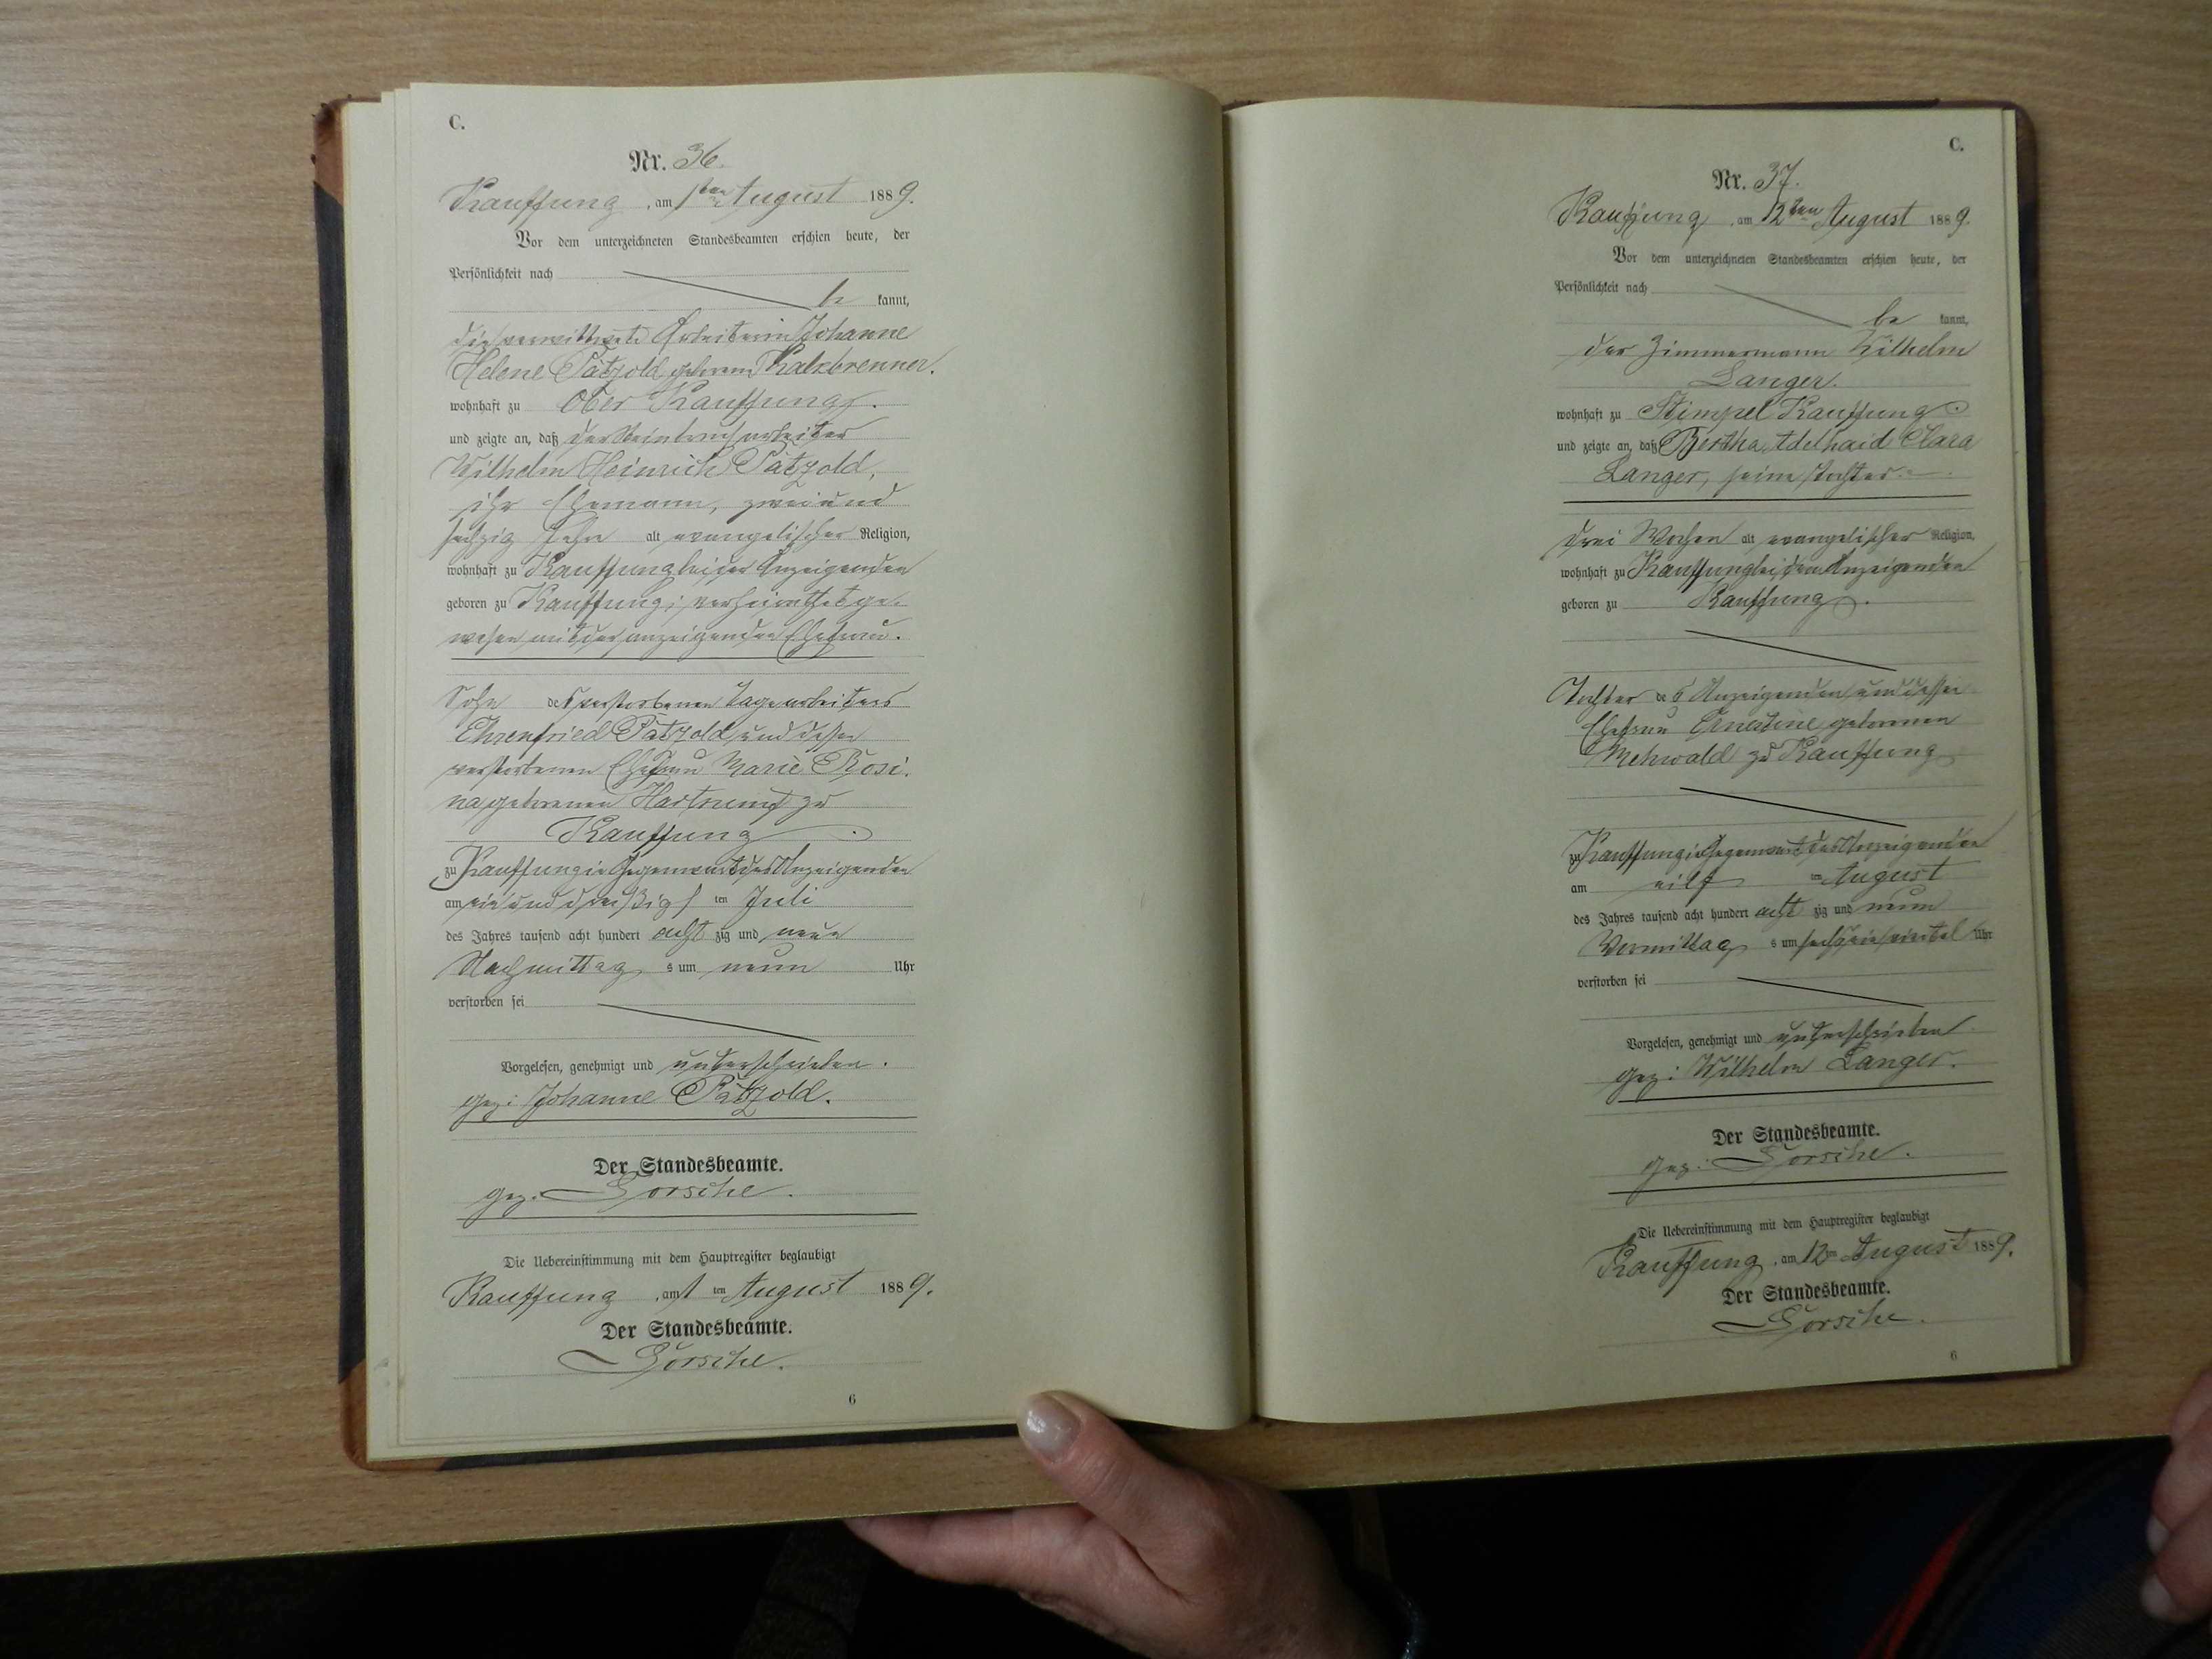 C.
Nr. 36.
Kauffung, am 1ten August 1889.
Vor dem unterzeichneten Standesbeamten erschien heute, der
Persönlichkeit nach
be kannt,
die verwittwete Arbeiterin Johanne
Helene Pätzold geborene Kalkbrenner.
wohnhaft zu Ober Kauffung.
und zeigte an, daß der Steinbrucharbeiter
Wilhelm Heinrich Pätzold,
ihr Ehemann, zweiund
sechzig Jahr alt evangelischer Religion,
wohnhaft zu Kauffung bei der Anzeigenden
geboren zu Kauffung; verheirathet ge-
wesen mit der anzeigenden Ehefrau.
Sohn des verstorbenen Tagearbeiters
Ehrenfried Pätzold und dessen
verstorbenen Ehefrau Marie Rosi-
na geborenen zu
Kauffung.
zu Kauffung in Gegenwart des Anzeigenden
am einunddreißigsten Juli
des Jahres tausend acht hundert acht zig und neun
Nachmittag s um neun Uhr
verstorben sei
Vorgelesen, genehmigt und unterschrieben.
gez: Johanne Pätzold.
Der Standesbeamte.
gez. Gorsche.
Die Uebereinstimmung mit dem Hauptregister beglaubigt
Kauffung, am 1 ten August 1889.
Der Standesbeamte.
Gorsche.
6
C.
Nr. 37.
Kauffung, am 12ten August 1889.
Vor dem unterzeichneten Standesbeamten erschien heute, der
Persönlichkeit nach
be kannt,
der Zimmermann Wilhelm
Langer.
wohnhaft zu Stimpel Kauffung
und zeigte an, daß Bertha Adelhaid Clara
Langer, seine Tochter
drei Wochen alt evangelischer Religion,
wohnhaft zu Kauffung bei dem Anzeigenden
geboren zu Kauffung.
Tochter des Anzeigenden und dessen
Ehefrau Ernestine geborenen
Mehwald zu Kauffung
zu Kauffung in Gegenwart des Anzeigenden
am eilf ten August
des Jahres tausend acht hundert acht zig und neun
Vormittag s um Uhr
verstorben sei
Vorgelesen, genehmigt und unterschrieben
gez: Wilhelm Langer.
Der Standesbeamte.
gez. Gorsche.
Die Uebereinstimmung mit dem Hauptregister beglaubigt
Kauffung, am 12ten August 1889.
Der Standesbeamte.
Gorsche.
6